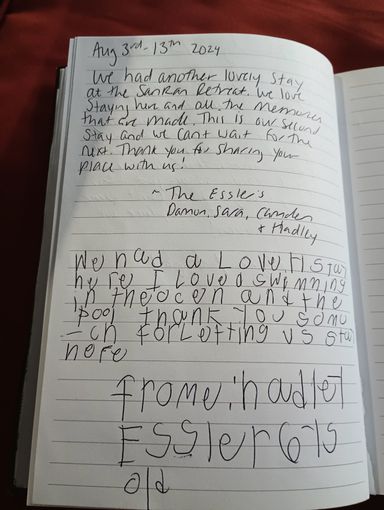 Aug 3rd - 13th 2024
We had another lovely stay
at the SanRan Retreat. We love
staying here and all the memories
that are made. This is our second
stay and we can't wait for the
next. Thank you for sharing your
place with us!
~ The Essler's
Damon, Sara, Camden
+ Hadley
We had a Lovely Stay
here I Loved swimming
in the ocen and the
pool thank you somu
-ch for Letting us stay
here
frome: hadley
Essler 6 7s
old